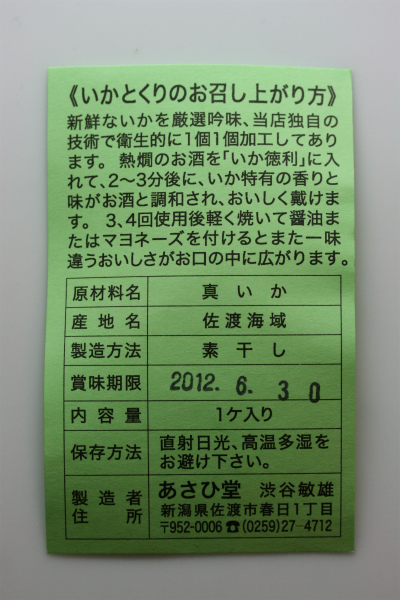 《いかとくりのお召し上がり方》
新鮮ないかを厳選吟味、当店独自の
技術で衛生的に1個1個加工してあり
ます。熱燗のお酒を「いか徳利」に入
れて、2〜3分後に、いか特有の香りと
味がお酒と調和され、おいしく戴けま
す。 3、4回使用後軽く焼いて醤油ま
たはマヨネーズを付けるとまた一味
違うおいしさがお口の中に広がります。
原材料名 真いか
産地名 佐渡海域
製造方法 素干し
賞味期限 2012. 6. 30
内容量 1ケ入り
保存方法 直射日光、高温多湿を
お避け下さい。
製造者 あさひ堂 渋谷敏雄
住所 新潟県佐渡市春日1丁目
〒952-0006 ☎(0259)27-4712